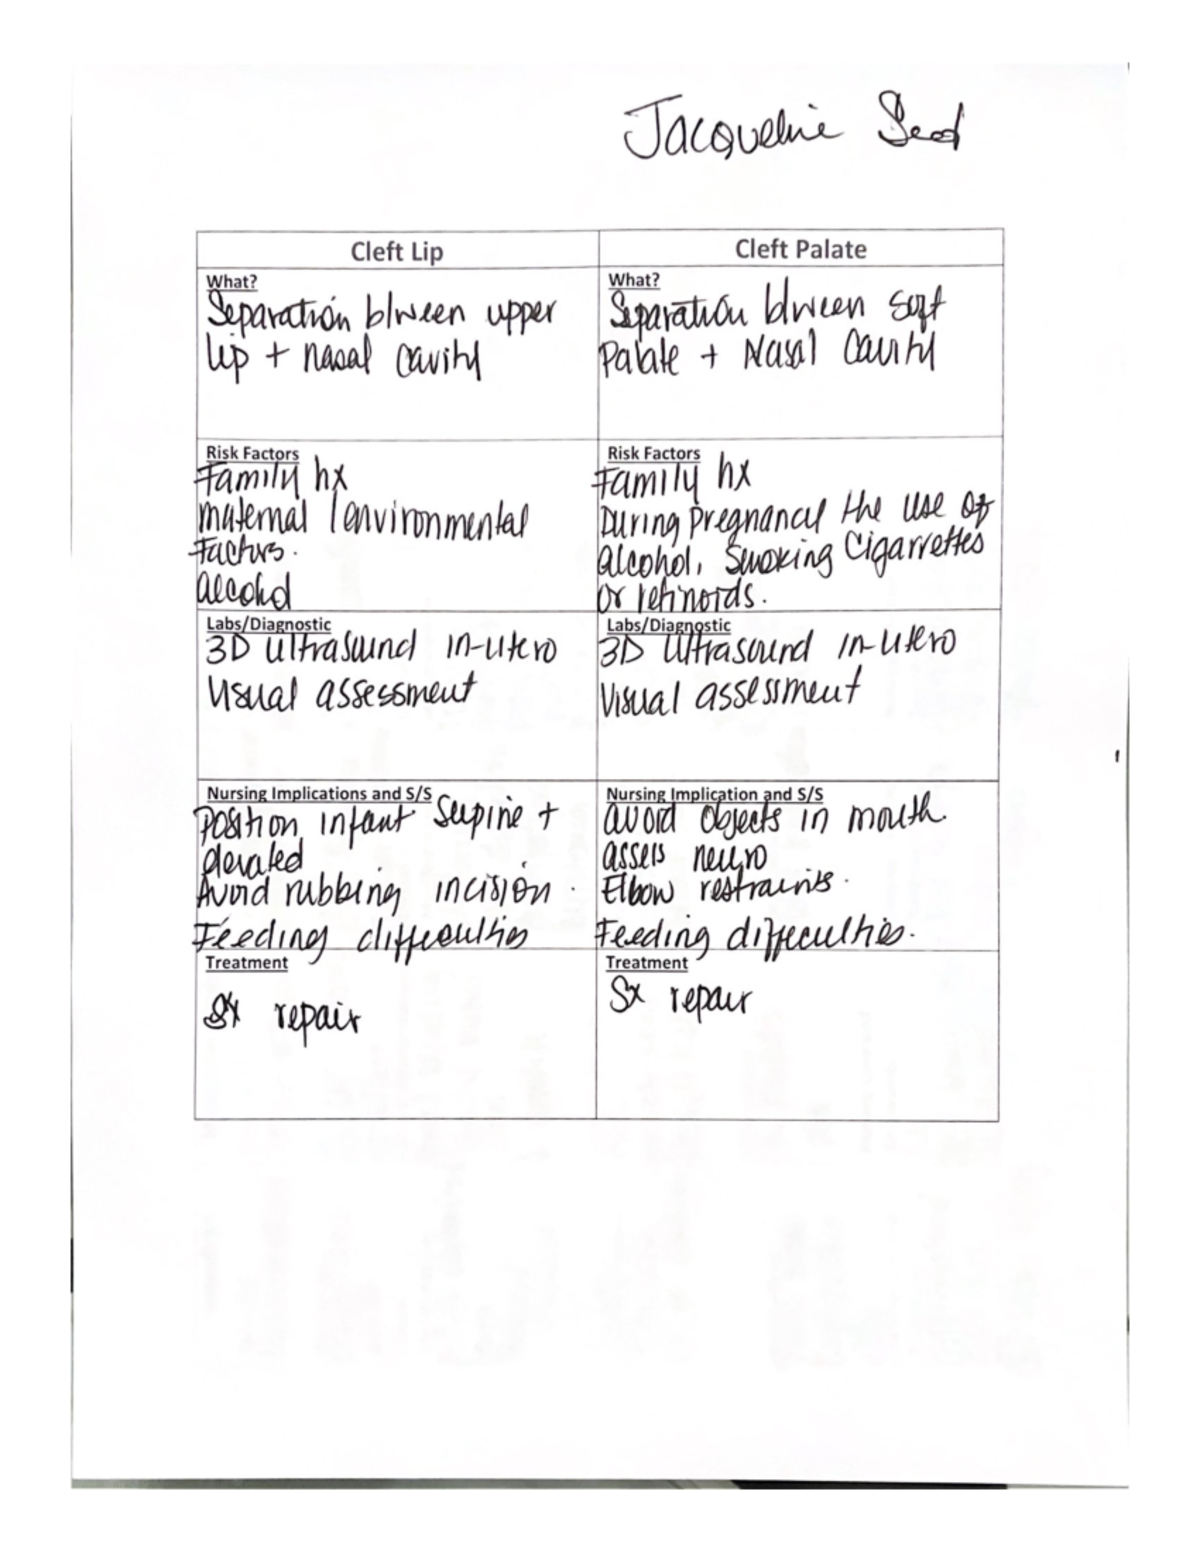 Jacqueline Seed
Cleft Lip
What?
Separation b/ween upper
lip + nasal cavity
Risk Factors
Family hx
maternal / environmental
Factors.
alcohol
Labs/Diagnostic
3D Ultrasound in-utero
Visual assessment
Nursing Implications and S/S
Position infant Supine +
elevated
Avoid rubbing incision.
Feeding difficulties
Treatment
Sx repair
Cleft Palate
What?
Separation b/ween soft
Palate + Nasal Cavity
Risk Factors
Family hx
During Pregnancy the use of
alcohol, Smoking Cigarrettes
or retinoids.
Labs/Diagnostic
3D Ultrasound in-utero
Visual assessment
Nursing Implication and S/S
avoid objects in mouth.
assess neuro
Elbow restraints.
Feeding difficulties.
Treatment
Sx repair